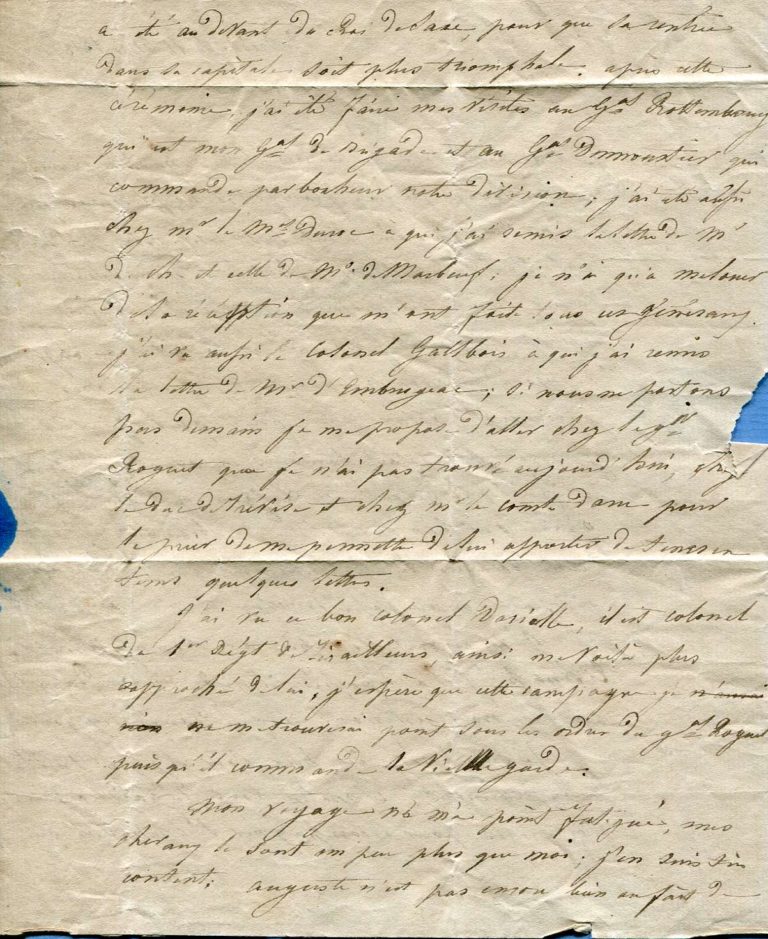 a été au devant du Roi de Saxe, pour que la rentrée
dans la capitale soit plus triomphale. après cette
cérémonie, j'ai été faire mes visites au Gal Rottembourg
qui est mon Gal de brigade et au Gal Dumoustier qui
commande par bonheur notre division; j'ai été aussi
chez mr le Mal Duroc a qui j'ai remis la lettre de Mr
de et celle de Mr. de Marbeuf; je n'ai qu'a me louer
de la réception que m'ont faite tous ces généraux.
j'ai vu aussi le Colonel Gallbois à qui j'ai remis
la lettre de Mr d'Embrugeac; si nous ne partons
pas demain je me propose d'aller chez le gal
Roguet que je n'ai pas trouvé aujourd'hui, chez
le duc de trévise et chez mr le comte daru pour
le prier de me permettre de lui apporter de tems en
tems quelques lettres.
J'ai vu ce bon colonel Darielle, il est colonel
du 1er Régt de Tirailleurs, ainsi me voilà plus
rapproché de lui, j'espère que cette campagne je n'aurai
rien ne me trouverai point sous les ordres du gal Roguet
puisqu'il commande la Vieille garde.
Mon voyage ne m'a point fatigué, mes
chevaux le sont un peu plus que moi; j'en suis
content; auguste n'est pas encore bien au fait de